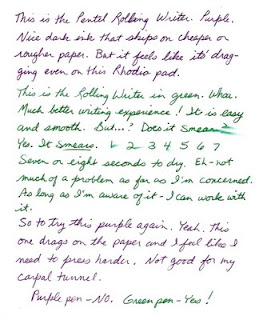 This is the Pentel Rolling Writer. Purple.
Nice dark ink that skips on cheaper or
rougher paper. But it feels like it's drag-
ging even on this Rhodia pad.
This is the Rolling Writer in green. Whoa.
Much better writing experience! It is easy
and smooth. But...? Does it smear?
Yes. It smears. 1 2 3 4 5 6 7
Seven or eight seconds to dry. Eh - not
much of a problem as far as I'm concerned.
As long as I'm aware of it - I can work with
it.
So to try this purple again. Yeah. This
one drags on the paper and I feel like I
need to press harder. Not good for my
carpal tunnel.
Purple pen - NO. Green pen - Yes!